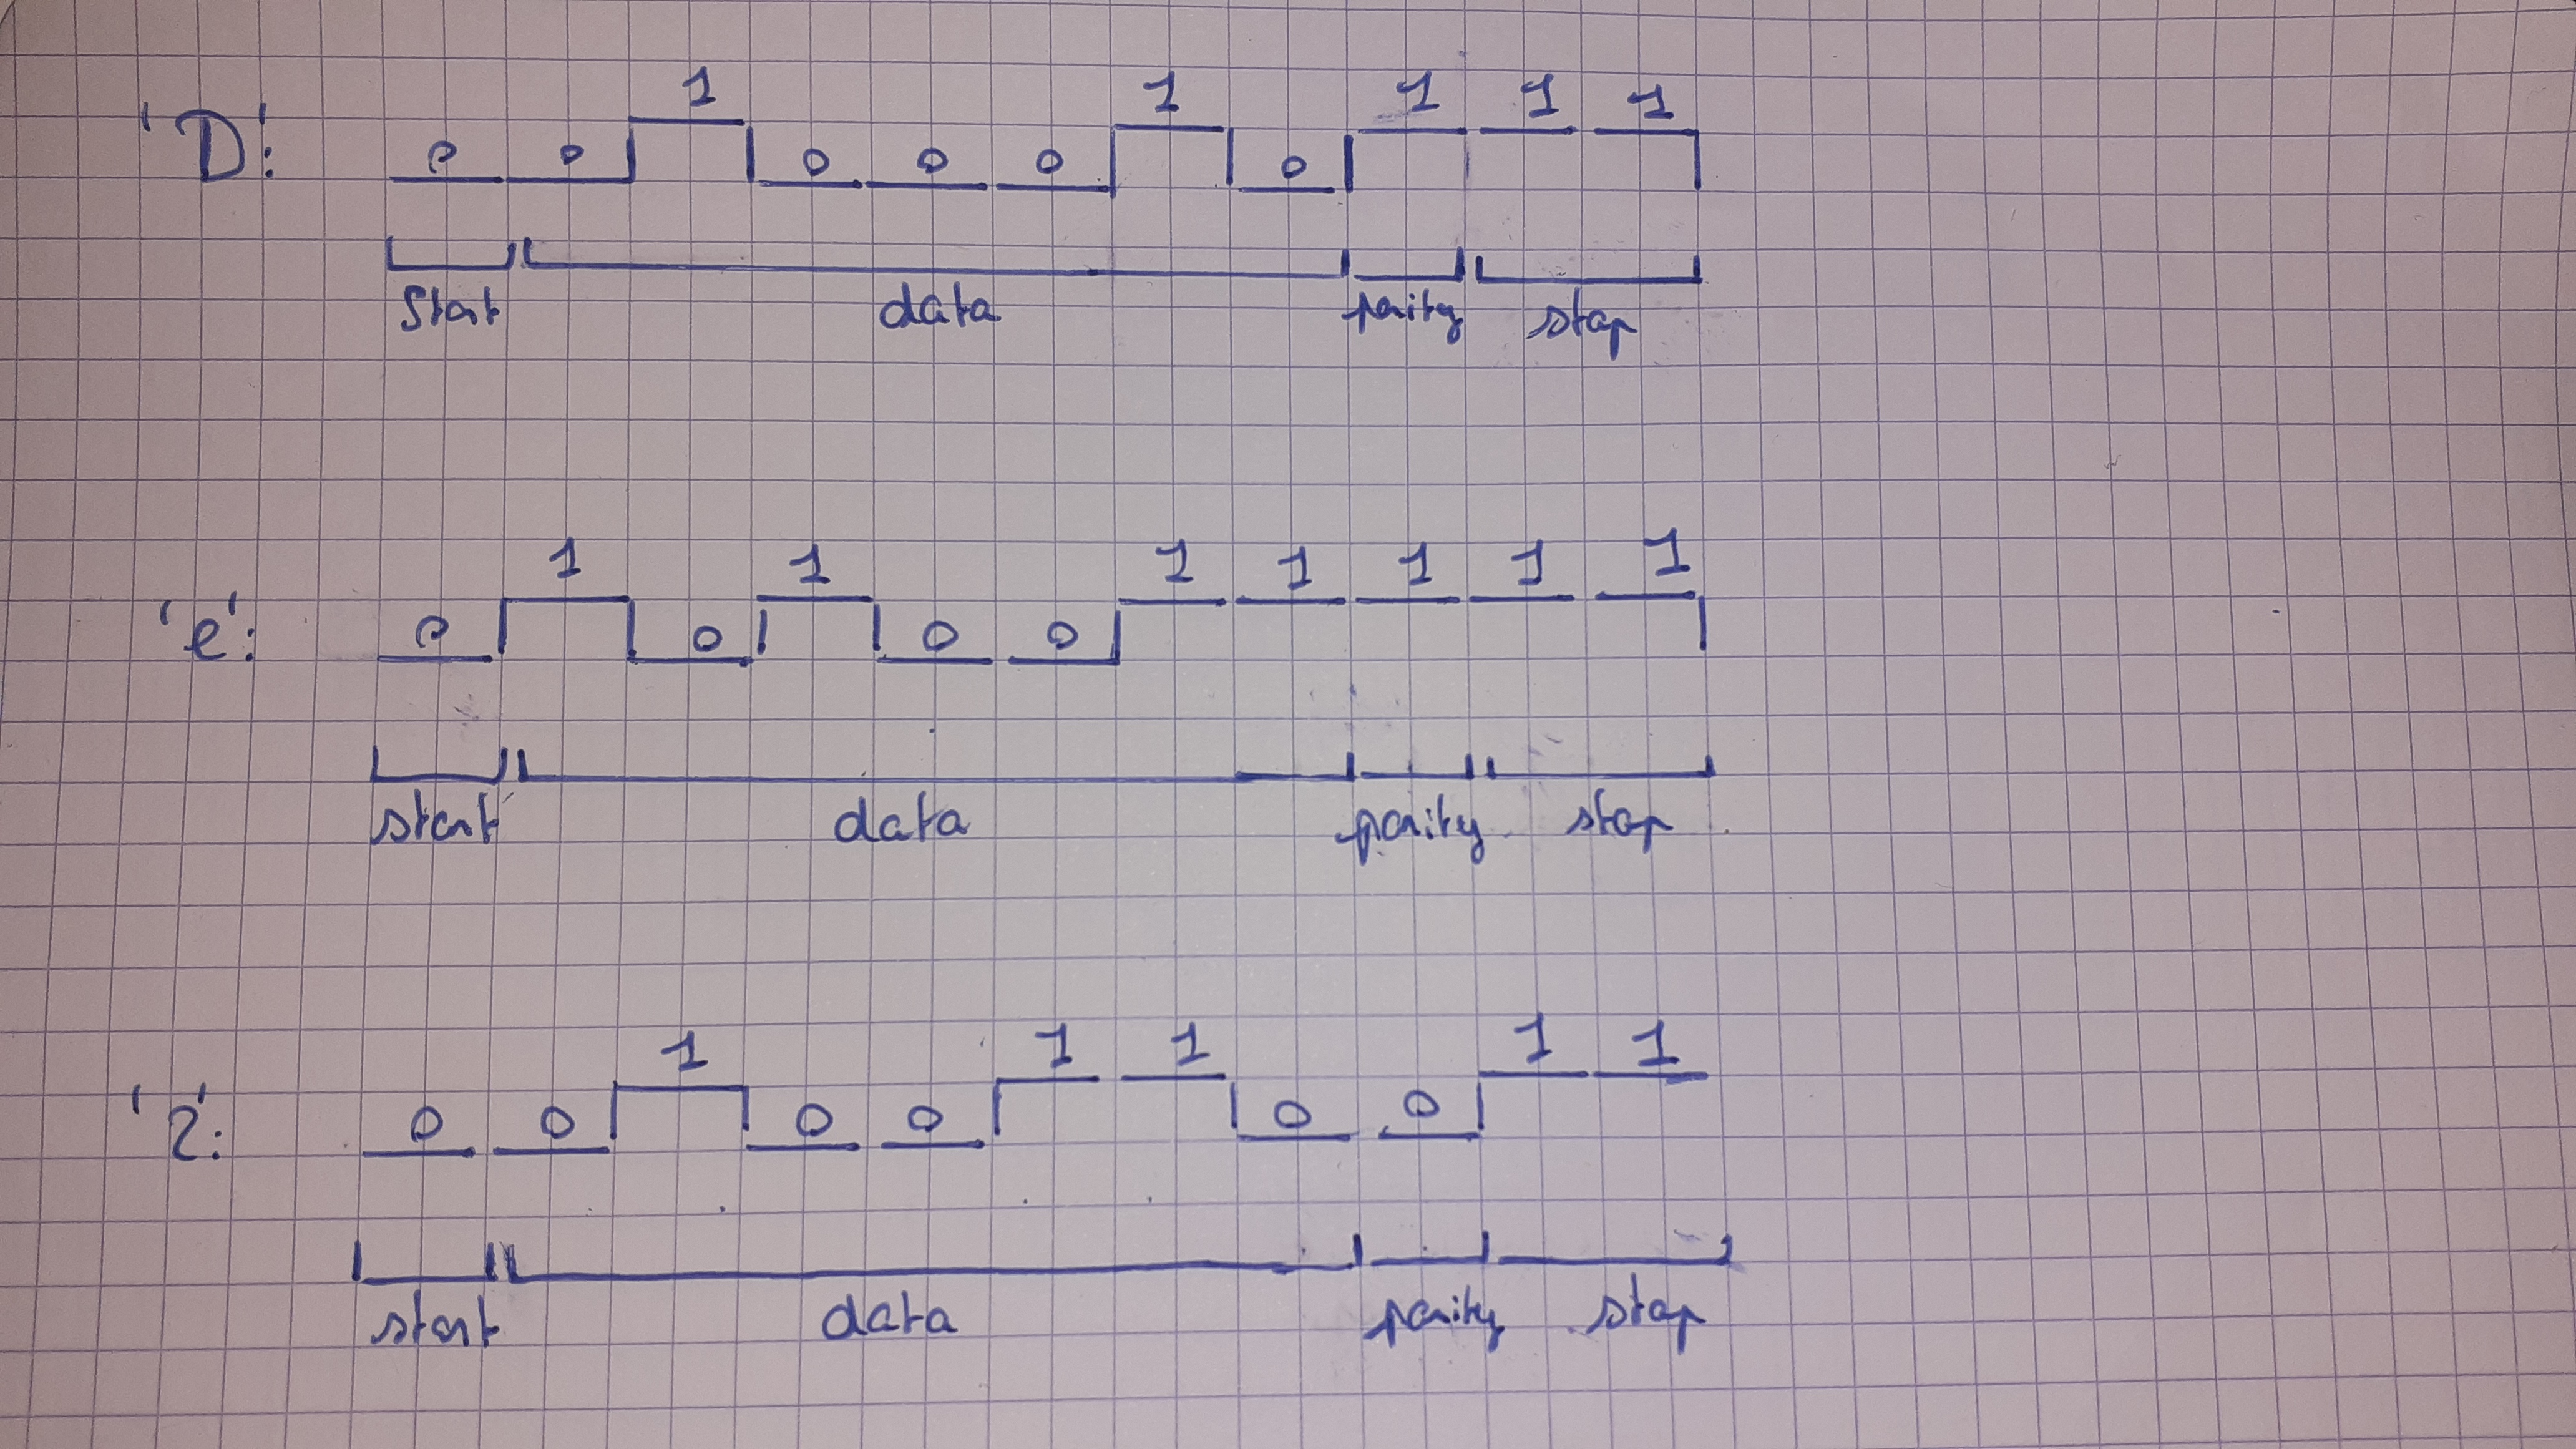 'D': 0 0 1 0 0 0 1 0 1 1 1
Start data parity stop
'e': 0 1 0 1 0 0 1 1 1 1 1
start data parity stop
'2': 0 0 1 0 0 1 1 0 0 1 1
start data parity stop